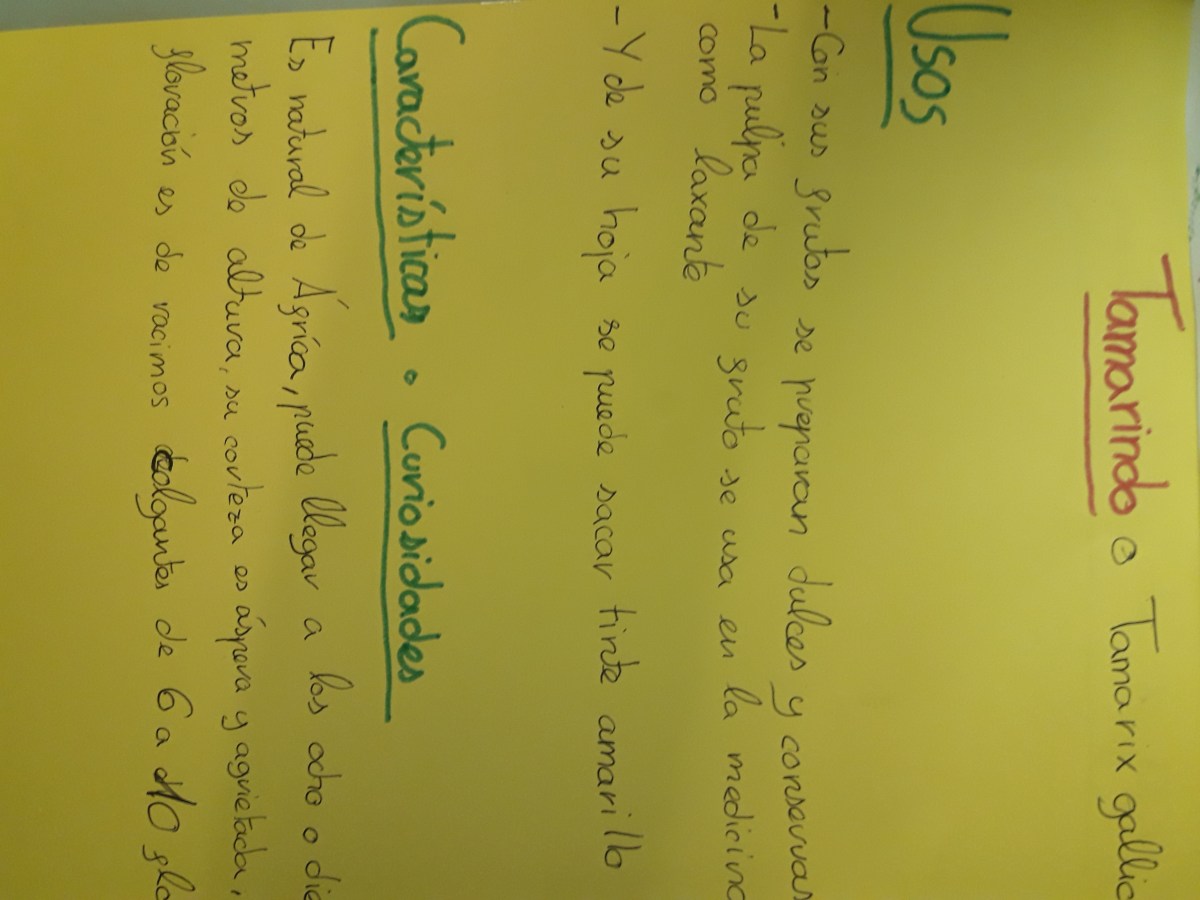 Tamarindo o Tamarix gallic
Usos
- Con sus frutos se preparan dulces y conservas
- La pulpa de su fruto se usa en la medicina
como laxante
- Y de su hoja se puede sacar tinte amarillo
Características o Curiosidades
Es natural de África, puede llegar a los ocho o die
metros de altura, su corteza es áspera y agrietada,
floración es de racimos colgantes de 6 a 10 flo